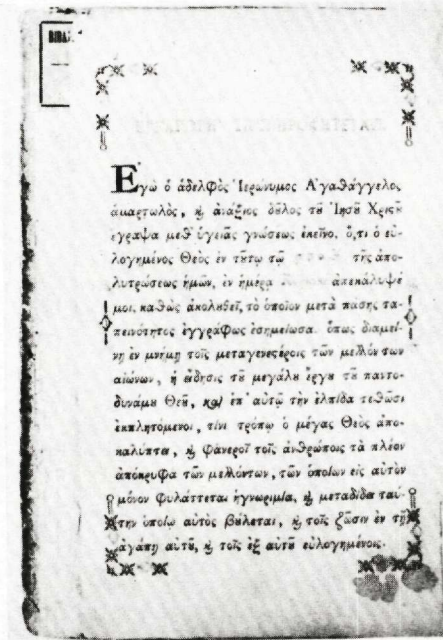 Εγὼ ὁ ἀδελφὸς Ἱερώνυμος Ἀγαθάγγελος
ἁμαρτωλὸς, ϗ ἀνάξιος δȣλος τȣ Ἰησȣ Χριςȣ
ἔγραψα μεθ' ὑγειᾶς γνώσεως ἐκεῖνο. ὅ,τι ὁ εὐ-
λογημένος Θεὸς ἐν τȣτῳ τῷ τῆς ἀπο-
λυτρώσεως ἡμῶν, ἐν ἡμέρᾳ ἀπεκάλυψέ
μοι. καθὼς ἀκολȣθεῖ, τὸ ὁποῖον μετὰ πάσης τα-
πεινότητος ἐγγράφως ἐσημείωσα. ὅπως διαμεί-
νῃ ἐν μνήμῃ τοῖς μεταγενεςέροις τῶν μελλόντων
αἰώνων, ἡ εἴδησις τȣ μεγάλȣ ἔργȣ τȣ παντο-
δυνάμȣ Θεȣ, καὶ ἐπ' αὐτῷ τὴν ἐλπίδα τεθῶσι
ἐκπλητόμενοι, τίνι τρόπῳ ὁ μέγας Θεὸς ἀπο-
καλύπτει, ϗ φανεροῖ τοῖς ἀνθρώποις τὰ πλέον
ἀπόκρυφα τῶν μελλόντων, τῶν ὁποίων εἰς αὐτὸν
μόνον φυλάττεται ἡ γνωριμία, ϗ μεταδίδει ταύ-
την ὁποίῳ αὐτὸς βȣλεται, ϗ τοῖς ζῶσιν ἐν τῇ
ἀγάπῃ αὐτȣ, ϗ τοῖς ἐξ αὐτȣ εὐλογημένοις.